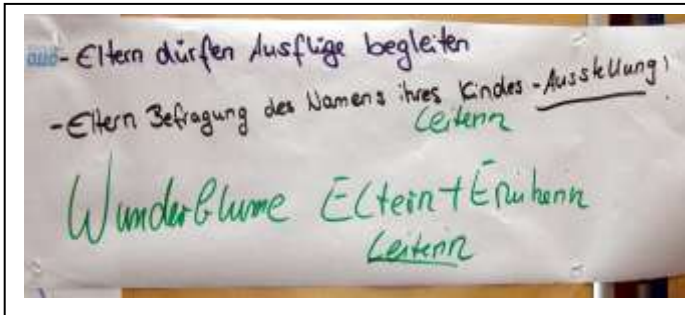 - Eltern dürfen Ausflüge begleiten
- Eltern Befragung des Namens ihres Kindes - Ausstellung!
Leiterin
Wunderblume Eltern +
Leiterin